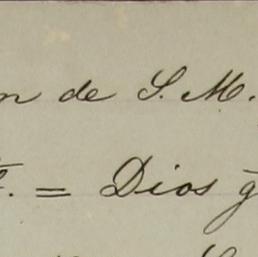 n de S. M.
. = Dios g